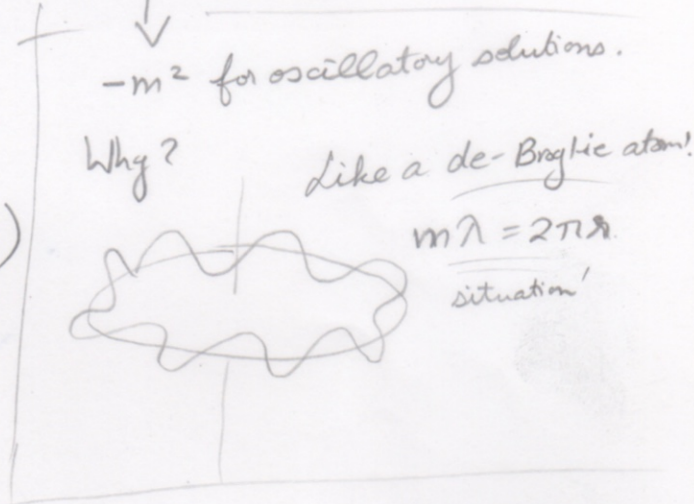 -m² for oscillatory solutions.
Why?
Like a de-Broglie atom!
mλ = 2πr
situation'